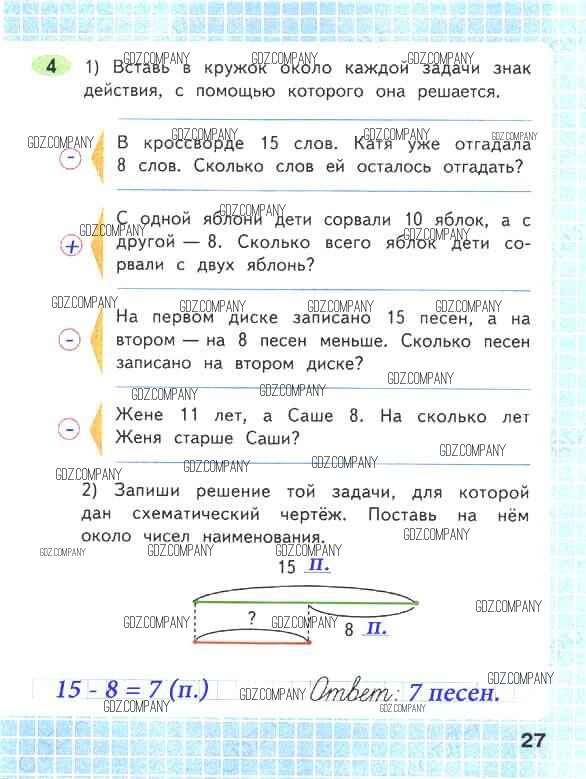 4 1) Вставь в кружок около каждой задачи знак
действия, с помощью которого она решается.
- В кроссворде 15 слов. Катя уже отгадала
8 слов. Сколько слов ей осталось отгадать?
+ С одной яблони дети сорвали 10 яблок, а с
другой — 8. Сколько всего яблок дети со-
рвали с двух яблонь?
- На первом диске записано 15 песен, а на
втором — на 8 песен меньше. Сколько песен
записано на втором диске?
- Жене 11 лет, а Саше 8. На сколько лет
Женя старше Саши?
2) Запиши решение той задачи, для которой
дан схематический чертёж. Поставь на нём
около чисел наименования.
15 п.
?
8 п.
15 - 8 = 7 (п.) Ответ: 7 песен.
27
GDZ.COMPANY